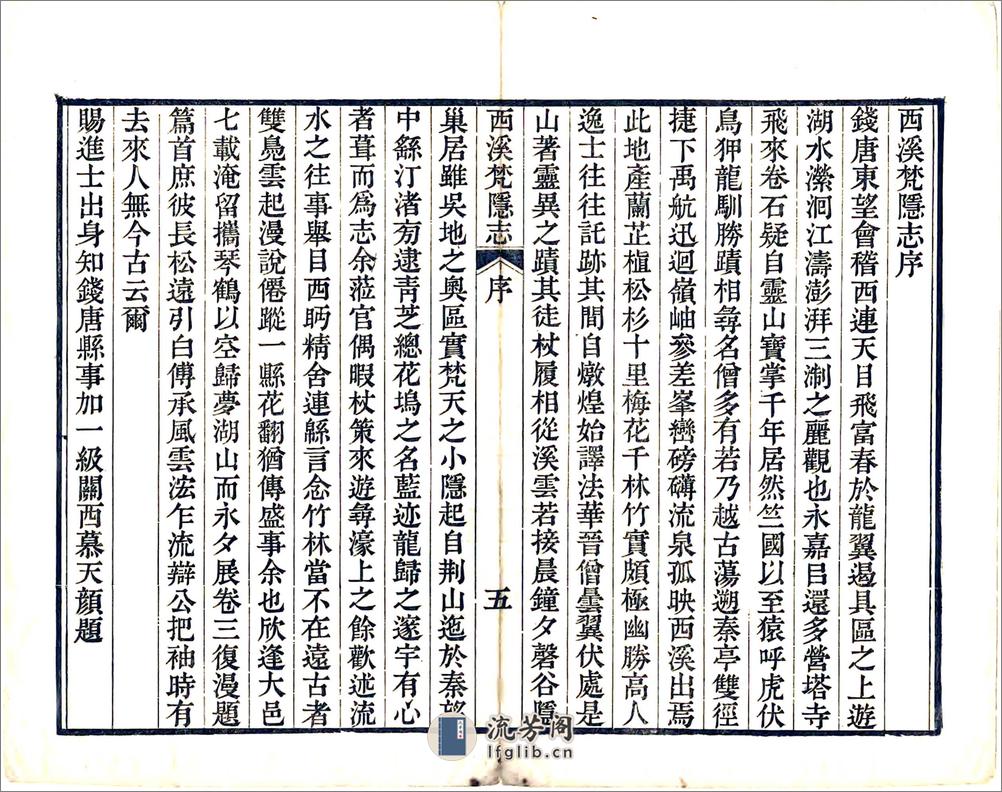 西溪梵隱志序
錢唐東望會稽西連天目飛富春於龍翼遏具區之上遊
湖水瀠洄江濤澎湃三淛之麗觀也永嘉㠯還多營塔寺
飛來卷石疑自靈山寶掌千年居然竺國以至猿呼虎伏
鳥狎龍馴勝蹟相尋名僧多有若乃越古蕩遡秦亭雙徑
捷下禹航迅迴嶺岫參差峯巒磅礴流泉孤映西溪出焉
此地產蘭芷植松杉十里梅花千林竹實頗極幽勝高人
逸士往往託跡其間自燉煌始譯法華晉僧曇翼伏處是
山著靈異之蹟其徒杖履相從溪雲若接晨鐘夕磬谷隱
西溪梵隱志 序 五
巢居雖吳地之奧區實梵天之小隱起自荆山迤於秦望
中繇汀渚旁逮靑芝總花塢之名藍迹龍歸之邃宇有心
者葺而爲志余涖官偶暇杖策來遊尋濠上之餘歡述流
水之往事舉目西眄精舍連緜言念竹林當不在遠古者
雙鳧雲起漫說僊蹤一縣花翻猶傳盛事余也欣逢大邑
七載淹留攜琴鶴以空歸夢湖山而永夕展卷三復漫題
篇首庶彼長松遠引白傅承風雲浤乍流辯公把袖時有
去來人無今古云爾
賜進士出身知錢唐縣事加一級關西慕天顏題
流芳阁
lfglib.cn